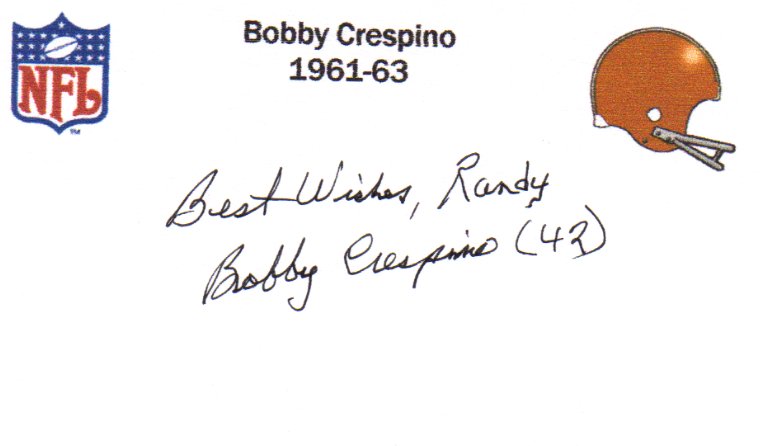 NFL
TM
Bobby Crespino
1961-63
Best Wishes, Randy
Bobby Crespino (42)